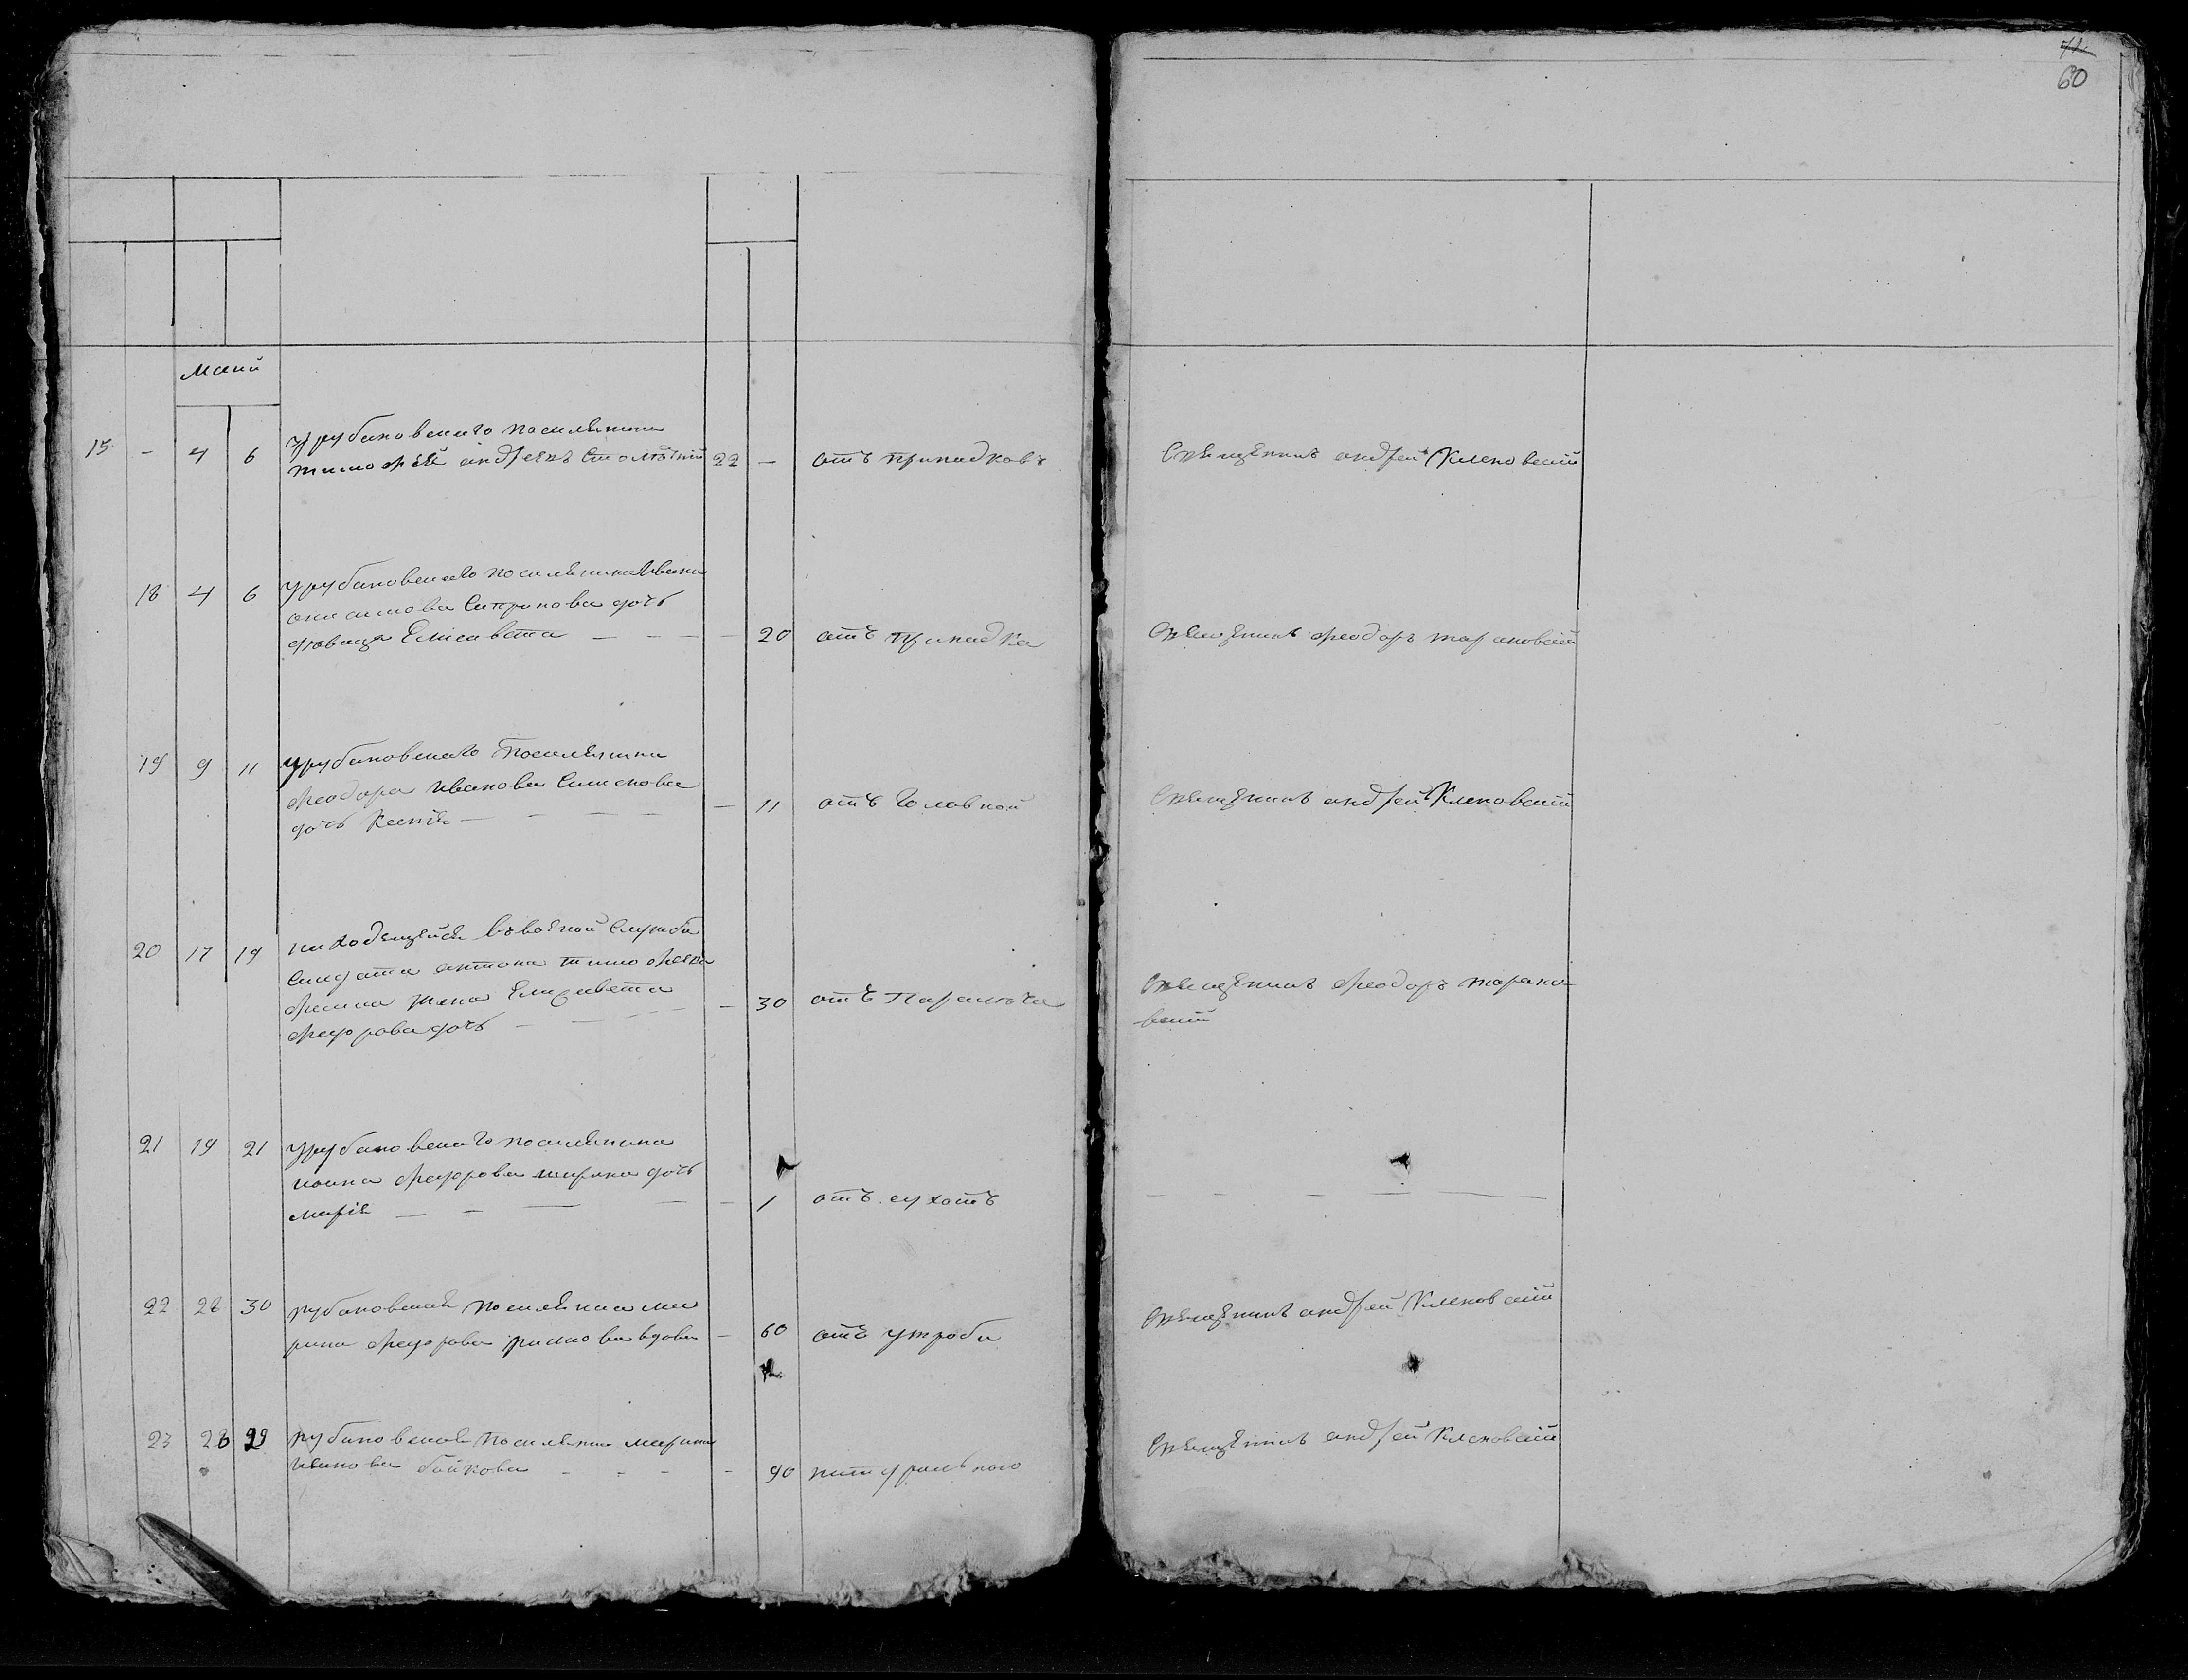 71
60
Маий
15 - 4 6 Урубановскаго поселянина
тимофѣй андреевъ Столѣтній 22 - отъ припадковъ Священникъ андрей Кленовскій
18 4 6 Урубановскаго поселянина Ивана
онисимова Сапронова дочь
дѣвица Елисавета - - - - 20 отъ припадка Священникъ Феодоръ тарановскій
19 9 11 Урубановскаго Поселянина
Феодора Иванова Симонова
дочь Ксенія - - - - - 11 отъ головной Священникъ андрей Кленовскій
20 17 19 находящейся въ военной Службѣ
Солдата антона тимофеева
жена Елизавета - 30 отъ Паралюча Священникъ Феодоръ тарано-
Федорова дочь - - - - вскій
21 19 21 Урубановскаго поселянина
иоана Федорова дочь
марія - - - - - 1 отъ сухотъ - - - - -
22 28 30 рубановская поселянка ма
рина Федорова вдова - 60 отъ утроби Священникъ андрей Кленовскій
23 28 29 рубановская поселянка марина
Иванова бойкова - - - - 90 натуральною Священникъ андрей Кленовскій